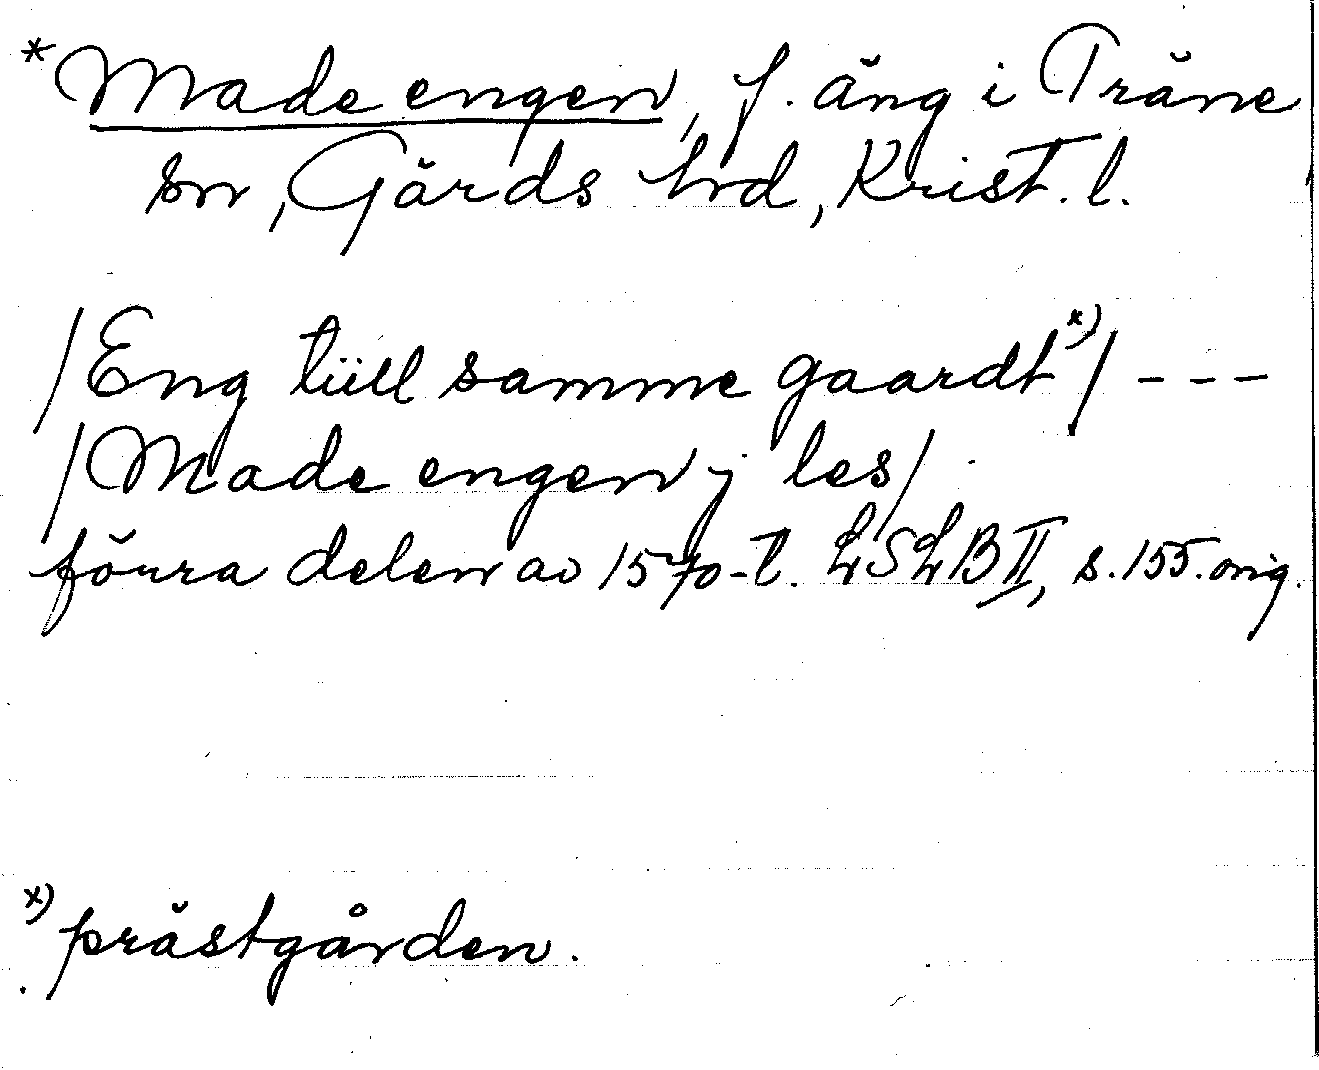 *Made engen, f. äng i Träne
sn, Gärds hrd, Krist. l.
/Eng tiill samme gaardt x)/ - - -
/Made engen j les/.
förra delen av 1570-t. LSLB II, s. 155. orig.
x) prästgården.